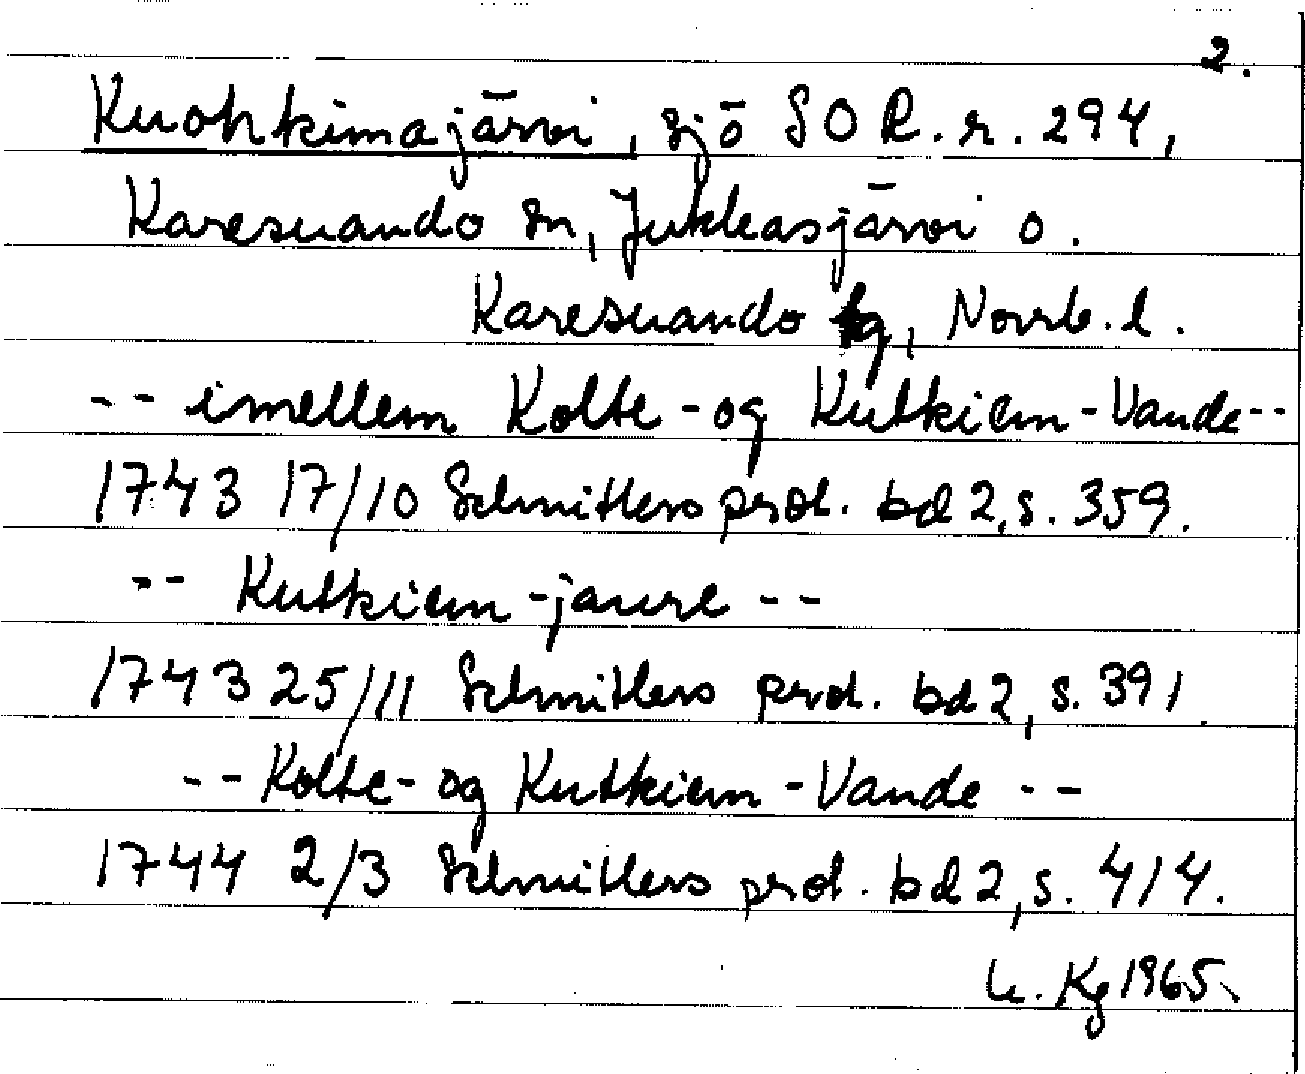 2.
Kuohkimajärvi, sjö SOR.r. 294,
Karesuando sn, Jukkasjärvi o.
Karesuando tg, Norrb. l.
-- imellem Kolte- og Kutkiem-Vande--
1743 17/10 Schnitlers prot. bd 2, s. 359.
-- Kutkiem-jaure --
1743 25/11 Schnitlers prot. bd 2, s. 391.
-- Kolte- og Kutkiem-Vande --
1744 2/3 Schnitlers prot. bd 2, s. 414.
Kg 1965